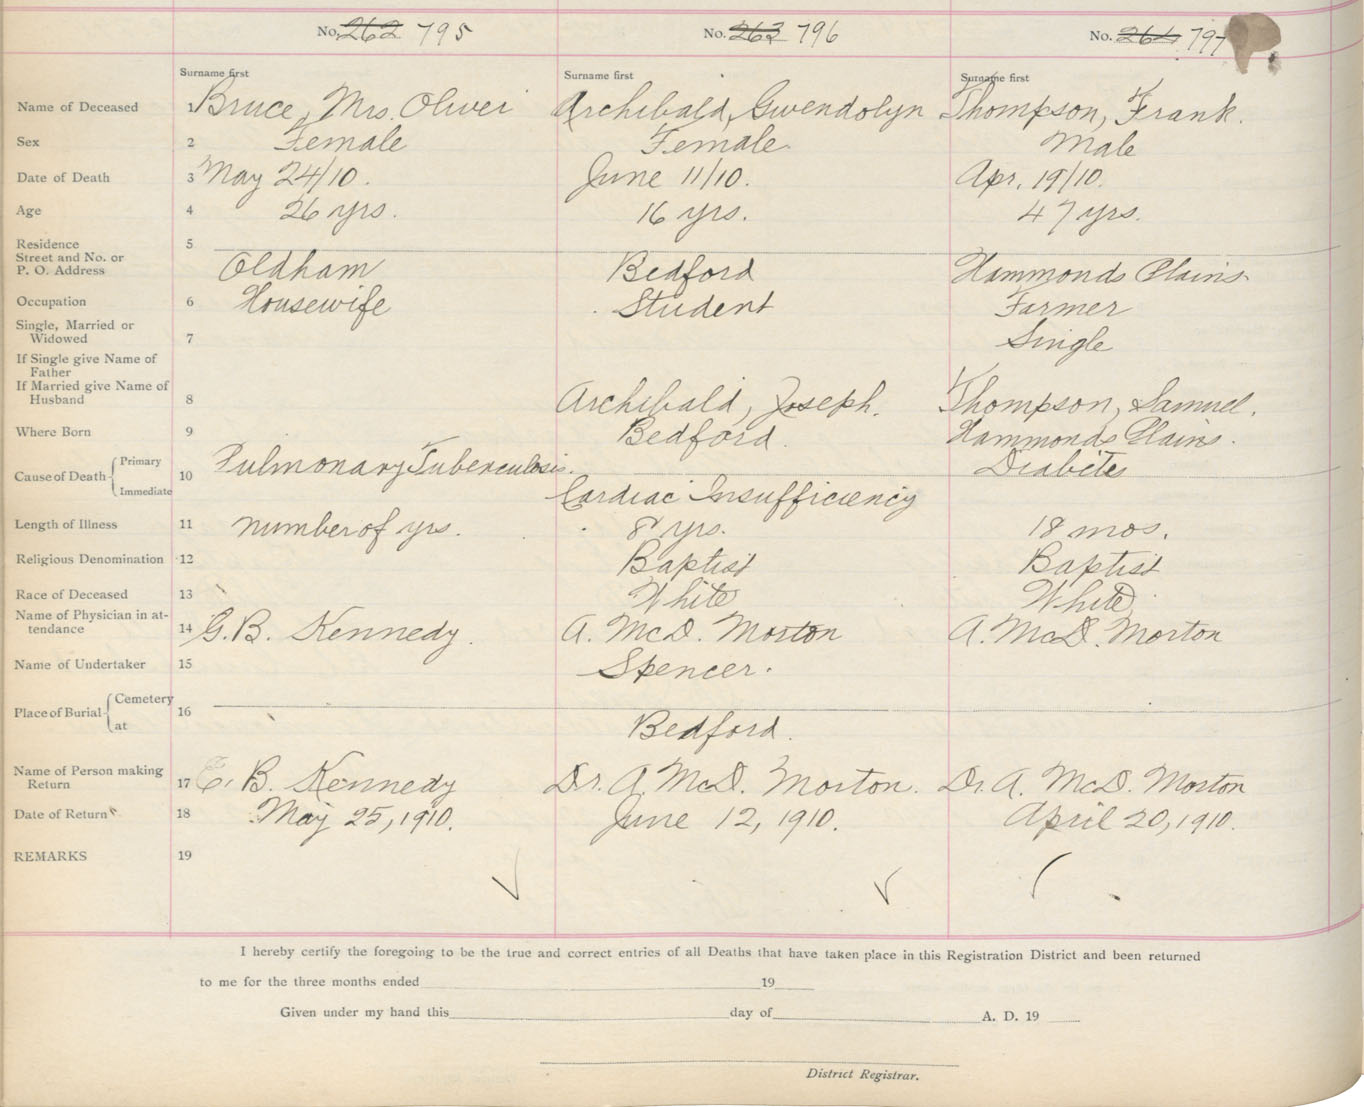 No. 262 795 No. 263 796 No. 264 797
Surname first Surname first Surname first
Name of Deceased 1 Bruce, Mrs. Oliver Archibald, Gwendolyn Thompson, Frank.
Sex 2 Female Female Male
Date of Death 3 May 24/10. June 11/10. Apr. 19/10.
Age 4 26 yrs. 16 yrs. 47 yrs.
Residence 5
Street and No. or
P. O. Address Oldham Bedford Hammonds Plains
Occupation 6 Housewife Student Farmer
Single, Married or
Widowed 7 Single
If Single give Name of
Father
If Married give Name of
Husband 8 Archibald, Joseph. Thompson, Samuel.
Where Born 9 Bedford. Hammonds Plains.
Cause of Death Primary 10 Pulmonary Tuberculosis. Diabites
Immediate Cardiac Insufficiency
Length of Illness 11 number of yrs. 8 yrs. 18 mos.
Religious Denomination 12 Baptist Baptist
Race of Deceased 13 White White
Name of Physician in at-
tendance 14 G. B. Kennedy. A. McD. Morton A. McD. Morton
Name of Undertaker 15 Spencer.
Place of Burial Cemetery 16
at Bedford.
Name of Person making
Return 17 E. B. Kennedy Dr. A. McD. Morton. Dr. A. McD. Morton
Date of Return 18 May 25, 1910. June 12, 1910. April 20, 1910.
REMARKS 19
I hereby certify the foregoing to be the true and correct entries of all Deaths that have taken place in this Registration District and been returned
to me for the three months ended 19
Given under my hand this day of A. D. 19
District Registrar.